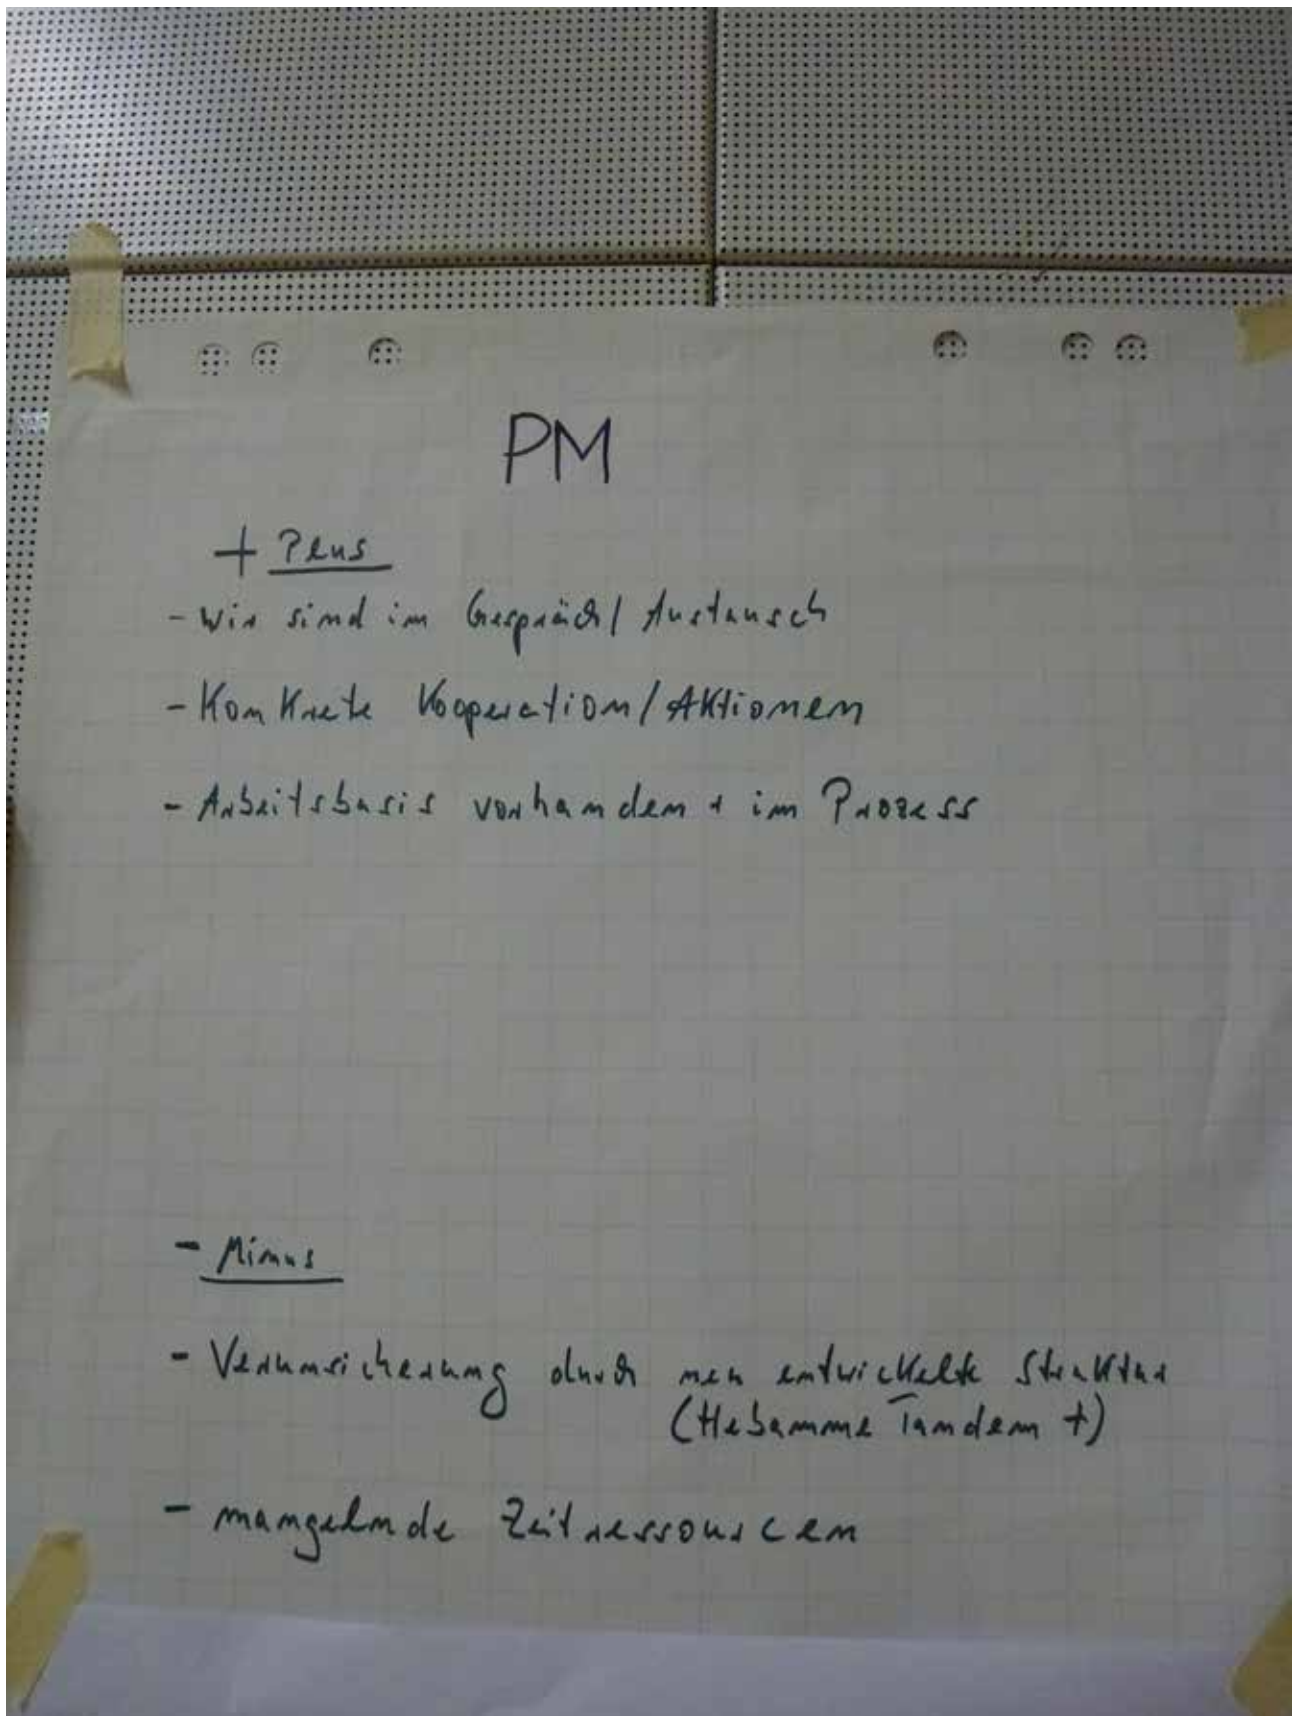 PM
+ Plus
- Wir sind im Gespräch/Austausch
- Konkrete Kooperation/Aktionen
- Arbeitsbasis vorhanden + im Prozess
- Minus
- Verunsicherung durch neu entwickelte Struktur
(Hebamme Tandem +)
- mangelnde Zeitressourcen